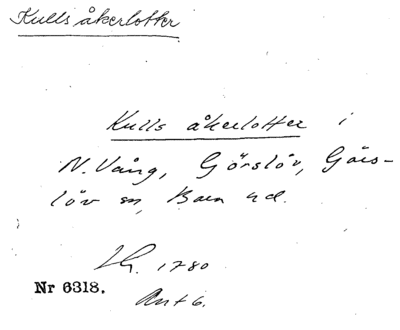 Kulls åkerlotter
Kulls åkerlotter i
N. Vång, Görslöv, Görs-
löv sn, Bara hd.
1780
Nr 6318.
Akt 6.